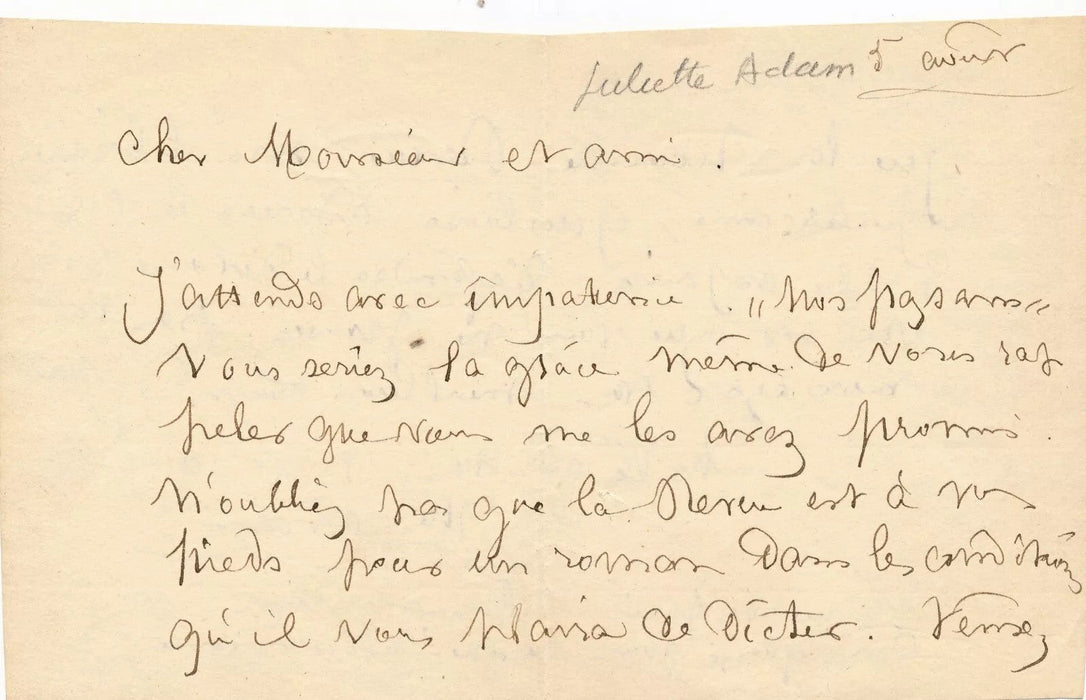 Juliette Adam 5 août
Cher Monsieur et ami.
J'attends avec impatience. "Nos paysans"
Vous seriez la grâce même de vous rap
peler que vous me les avez promis.
N'oubliez pas que la Revue est à vos
pieds pour un roman dans les conditions
qu'il vous plaira de dicter. Pensez